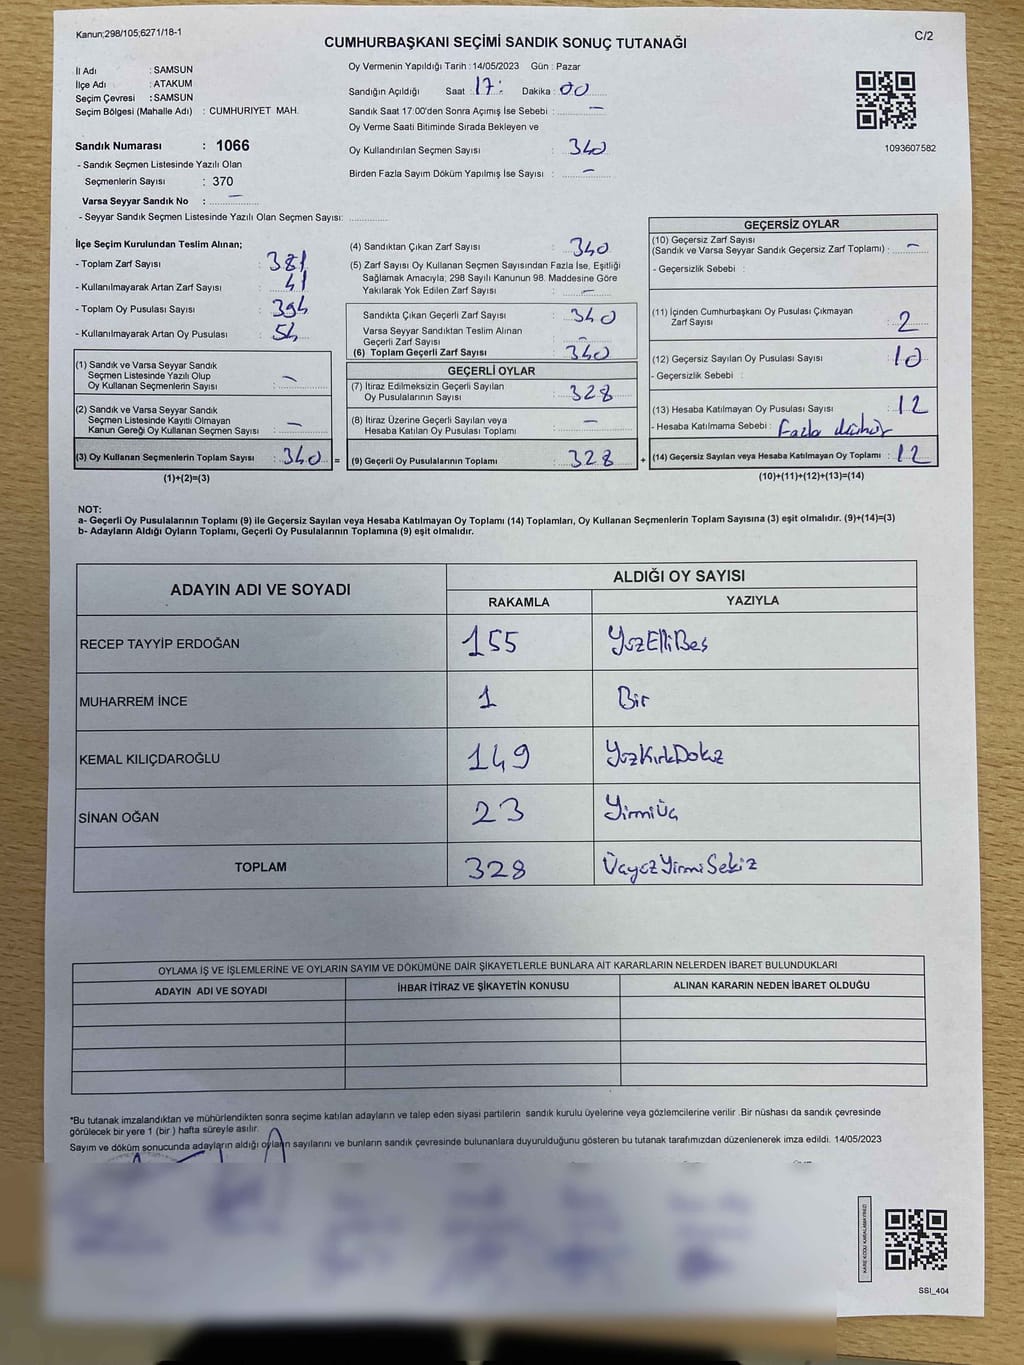 Kanun;298/105;6271/18-1
C/2
CUMHURBAŞKANI SEÇİMİ SANDIK SONUÇ TUTANAĞI
İl Adı : SAMSUN
İlçe Adı : ATAKUM
Seçim Çevresi : SAMSUN
Seçim Bölgesi (Mahalle Adı) : CUMHURIYET MAH.
Sandık Numarası : 1066
- Sandık Seçmen Listesinde Yazılı Olan
Seçmenlerin Sayısı : 370
Varsa Seyyar Sandık No : —
- Seyyar Sandık Seçmen Listesinde Yazılı Olan Seçmen Sayısı:
Oy Vermenin Yapıldığı Tarih : 14/05/2023 Gün : Pazar
Sandığın Açıldığı Saat : 17: Dakika : 00
Sandık Saat 17:00'den Sonra Açımış İse Sebebi : —
Oy Verme Saati Bitiminde Sırada Bekleyen ve
Oy Kullandırılan Seçmen Sayısı : 340
Birden Fazla Sayım Döküm Yapılmış İse Sayısı : —
1093607582
İlçe Seçim Kurulundan Teslim Alınan;
- Toplam Zarf Sayısı : 381
- Kullanılmayarak Artan Zarf Sayısı : 41
- Toplam Oy Pusulası Sayısı : 394
- Kullanılmayarak Artan Oy Pusulası : 54
(1) Sandık ve Varsa Seyyar Sandık
Seçmen Listesinde Yazılı Olup
Oy Kullanan Seçmenlerin Sayısı : —
(2) Sandık ve Varsa Seyyar Sandık
Seçmen Listesinde Kayıtlı Olmayan
Kanun Gereği Oy Kullanan Seçmen Sayısı : —
(3) Oy Kullanan Seçmenlerin Toplam Sayısı : 340 =
(1)+(2)=(3)
(4) Sandıktan Çıkan Zarf Sayısı : 340
(5) Zarf Sayısı Oy Kullanan Seçmen Sayısından Fazla İse, Eşitliği
Sağlamak Amacıyla; 298 Sayılı Kanunun 98. Maddesine Göre
Yakılarak Yok Edilen Zarf Sayısı : —
Sandıkta Çıkan Geçerli Zarf Sayısı : 340
Varsa Seyyar Sandıktan Teslim Alınan
Geçerli Zarf Sayısı : —
(6) Toplam Geçerli Zarf Sayısı : 340
GEÇERLİ OYLAR
(7) İtiraz Edilmeksizin Geçerli Sayılan
Oy Pusulalarının Sayısı : 328
(8) İtiraz Üzerine Geçerli Sayılan veya
Hesaba Katılan Oy Pusulası Toplamı : —
(9) Geçerli Oy Pusulalarının Toplamı : 328 +
GEÇERSİZ OYLAR
(10) Geçersiz Zarf Sayısı
(Sandık ve Varsa Seyyar Sandık Geçersiz Zarf Toplamı) : —
- Geçersizlik Sebebi :
(11) İçinden Cumhurbaşkanı Oy Pusulası Çıkmayan
Zarf Sayısı : 2
(12) Geçersiz Sayılan Oy Pusulası Sayısı : 10
- Geçersizlik Sebebi :
(13) Hesaba Katılmayan Oy Pusulası Sayısı : 12
- Hesaba Katılmama Sebebi : Fazla
(14) Geçersiz Sayılan veya Hesaba Katılmayan Oy Toplamı : 12
(10)+(11)+(12)+(13)=(14)
NOT:
a- Geçerli Oy Pusulalarının Toplamı (9) ile Geçersiz Sayılan veya Hesaba Katılmayan Oy Toplamı (14) Toplamları, Oy Kullanan Seçmenlerin Toplam Sayısına (3) eşit olmalıdır. (9)+(14)=(3)
b- Adayların Aldığı Oyların Toplamı, Geçerli Oy Pusulalarının Toplamına (9) eşit olmalıdır.
ADAYIN ADI VE SOYADI
ALDIĞI OY SAYISI
RAKAMLA YAZIYLA
RECEP TAYYİP ERDOĞAN 155 YüzElliBeş
MUHARREM İNCE 1 Bir
KEMAL KILIÇDAROĞLU 149 YüzKırkDokuz
SİNAN OĞAN 23 YirmiÜç
TOPLAM 328 ÜçyüzYirmiSekiz
OYLAMA İŞ VE İŞLEMLERİNE VE OYLARIN SAYIM VE DÖKÜMÜNE DAİR ŞİKAYETLERLE BUNLARA AİT KARARLARIN NELERDEN İBARET BULUNDUKLARI
ADAYIN ADI VE SOYADI İHBAR İTİRAZ VE ŞİKAYETİN KONUSU ALINAN KARARIN NEDEN İBARET OLDUĞU
*Bu tutanak imzalandıktan ve mühürlendikten sonra seçime katılan adayların ve talep eden siyasi partilerin sandık kurulu üyelerine veya gözlemcilerine verilir .Bir nüshası da sandık çevresinde
görülecek bir yere 1 (bir ) hafta süreyle asılır.
Sayım ve döküm sonucunda adayların aldığı oyların sayılarını ve bunların sandık çevresinde bulunanlara duyurulduğunu gösteren bu tutanak tarafımızdan düzenlenerek imza edildi. 14/05/2023
KARE KODU KARALAMAYINIZ!
SSI_404